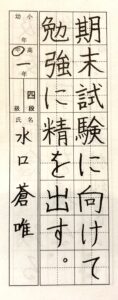 期末試験に向けて
勉強に精を出す。
幼 小 中 高 一年
四段 級
氏名 水口 蒼唯